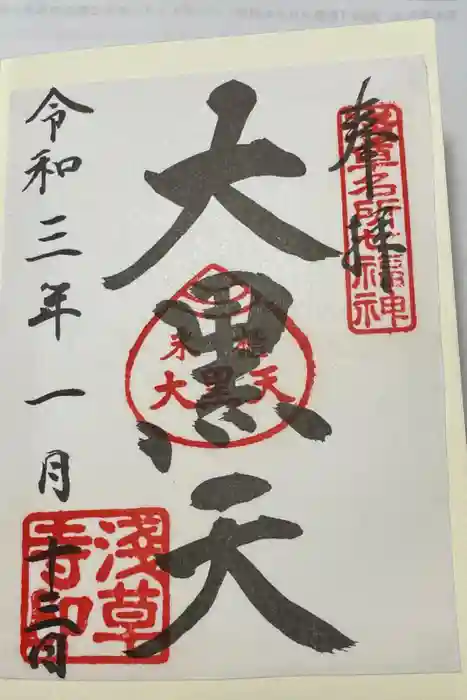 奉拝
浅草名所七福神
大黒天
米櫃
大黒天
令和三年一月十三日
浅草寺印